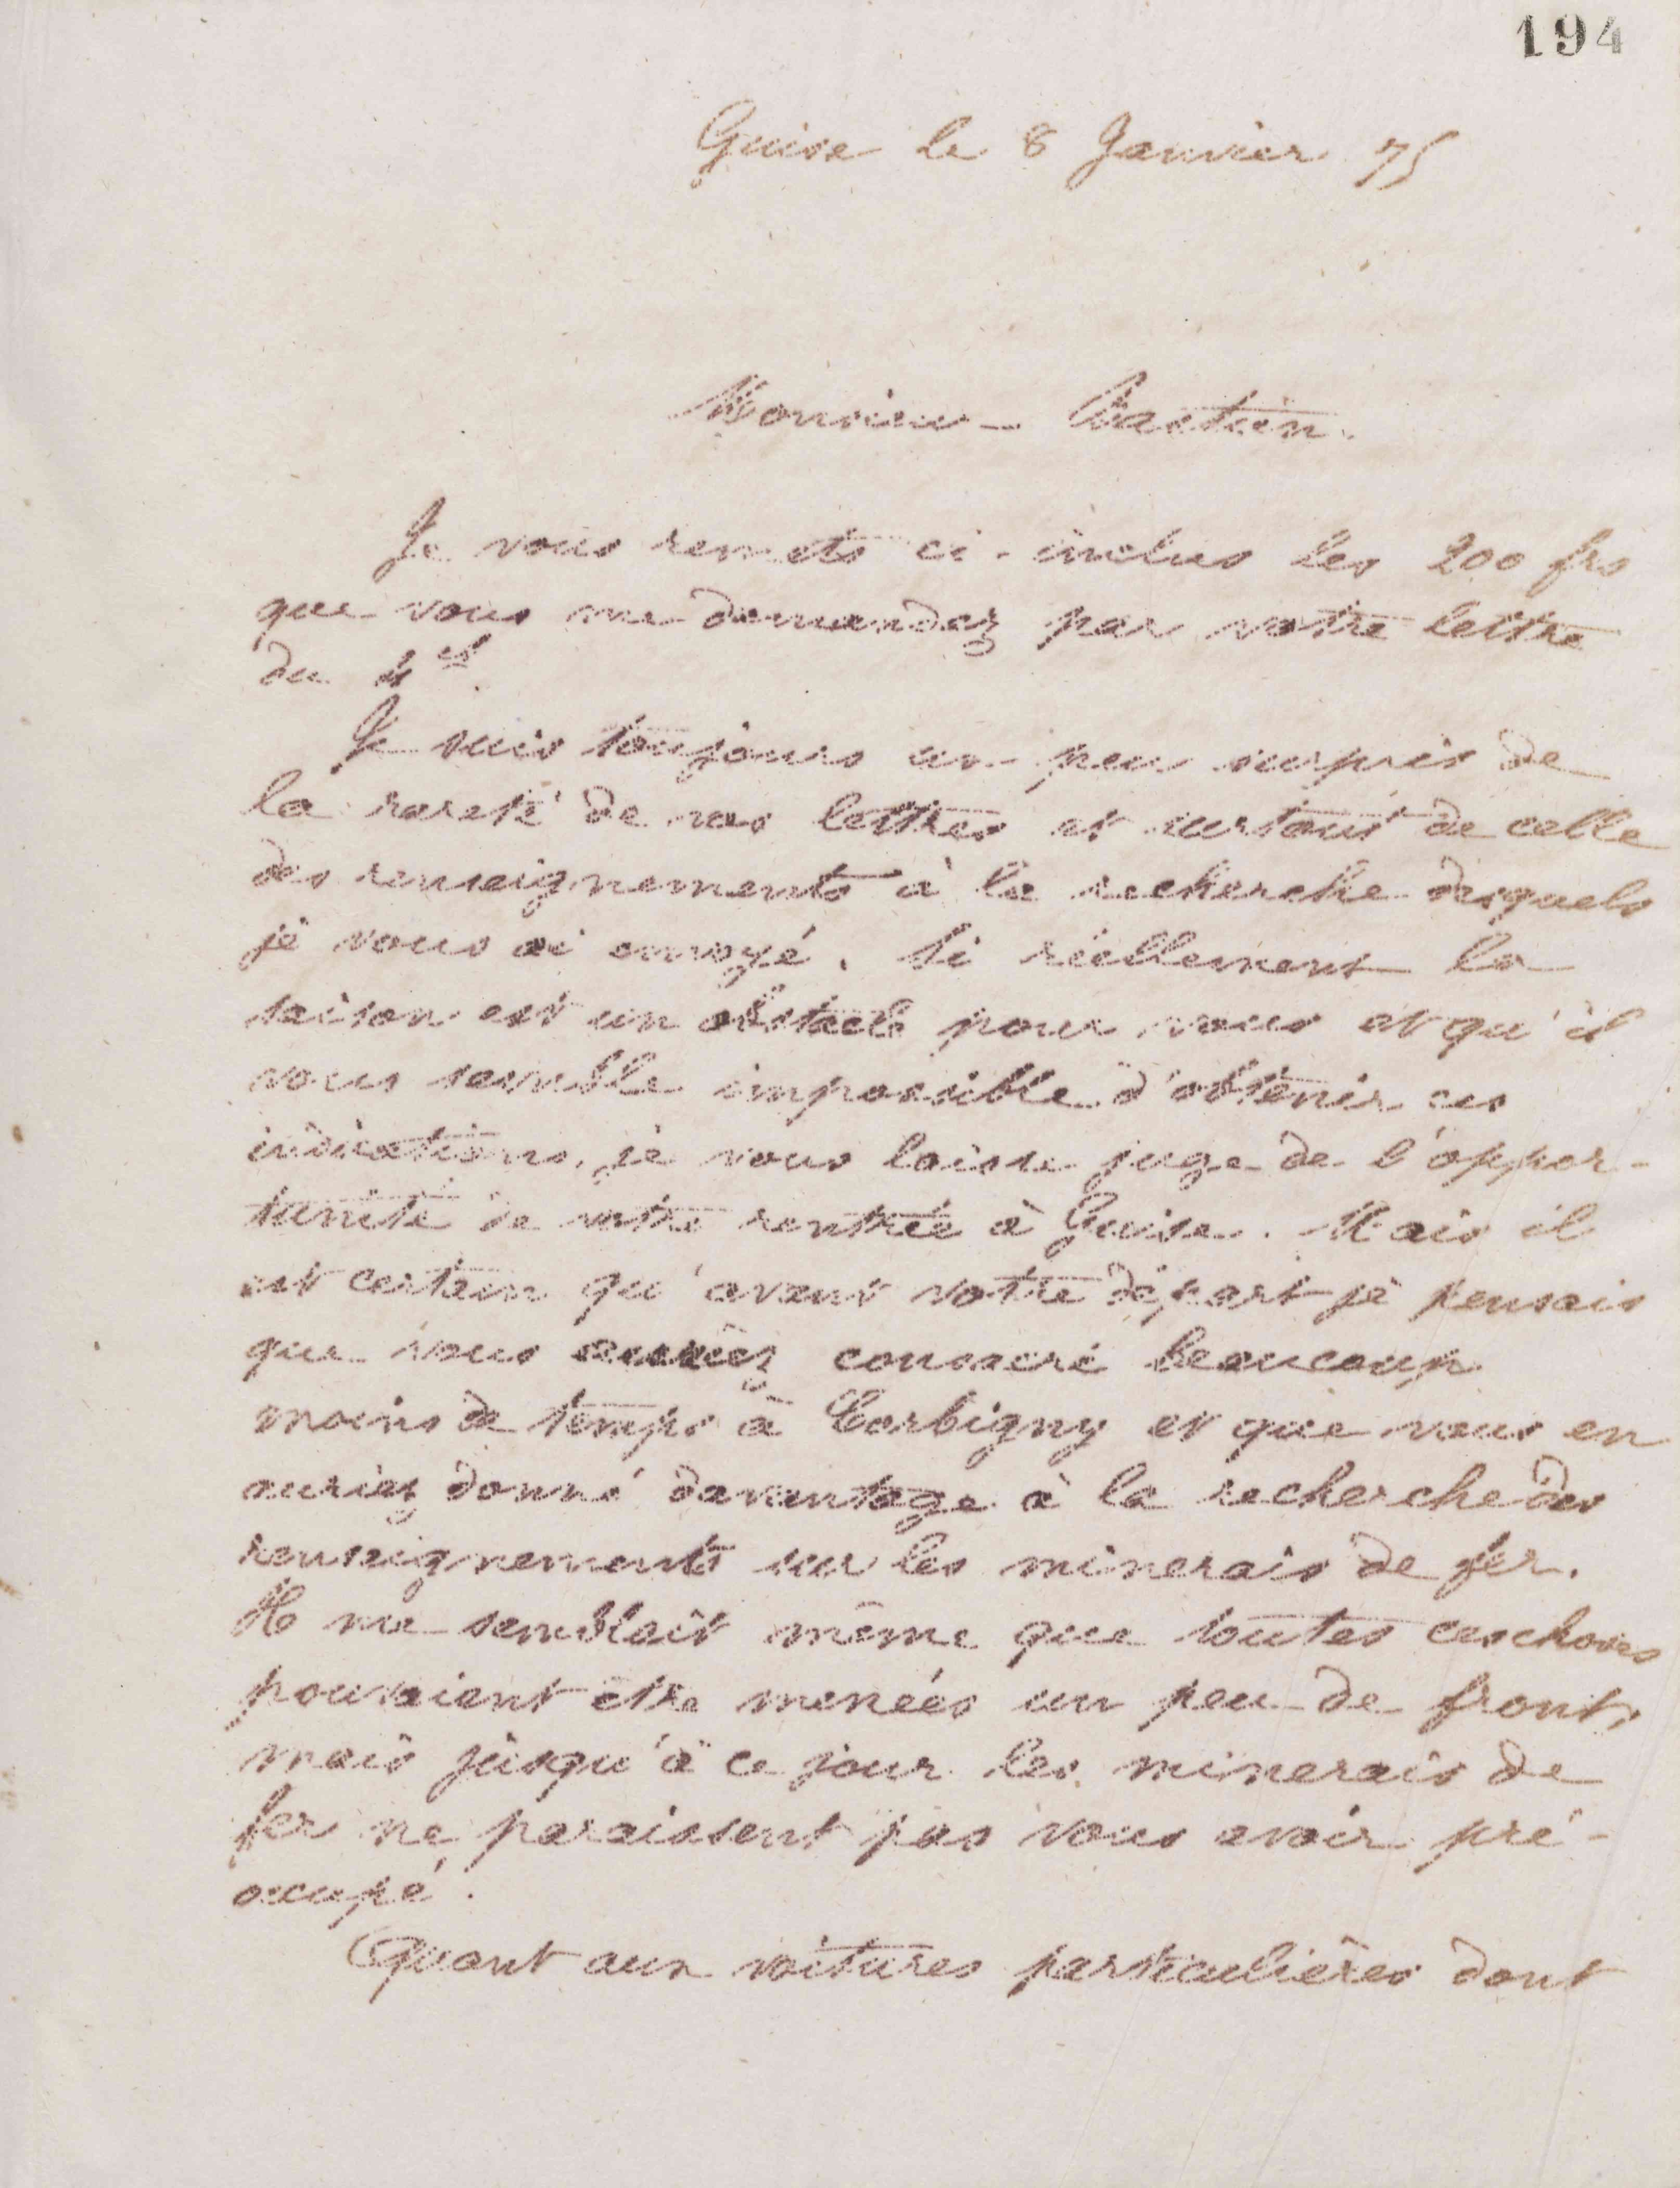 194
Guise le 8 Janvier 75
Monsieur
Je vous remets ci-inclus les 200 frs
que vous me demandez par votre lettre
du 4 ct.
Je suis toujours un peu surpris de
la rareté de vos lettres et surtout de celle
des renseignements à la recherche desquels
je vous ai envoyé. Si réellement la
saison est un obstacle pour vous et qu'il
vous semble impossible d'obtenir ces
indications, je vous laisse juge de l'oppor-
tunité de votre rentrée à Guise. Mais il
est certain qu'avant votre départ je pensais
que vous auriez consacré beaucoup
moins de temps à Corbigny et que vous en
auriez donné davantage à la recherche des
renseignements sur les minerais de fer.
Il me semblait même que toutes ces choses
pouvaient être menées un peu de front,
mais jusqu'à ce jour les minerais de
fer ne paraissent pas vous avoir pré-
occupé.
Quant aux voitures particulières dont